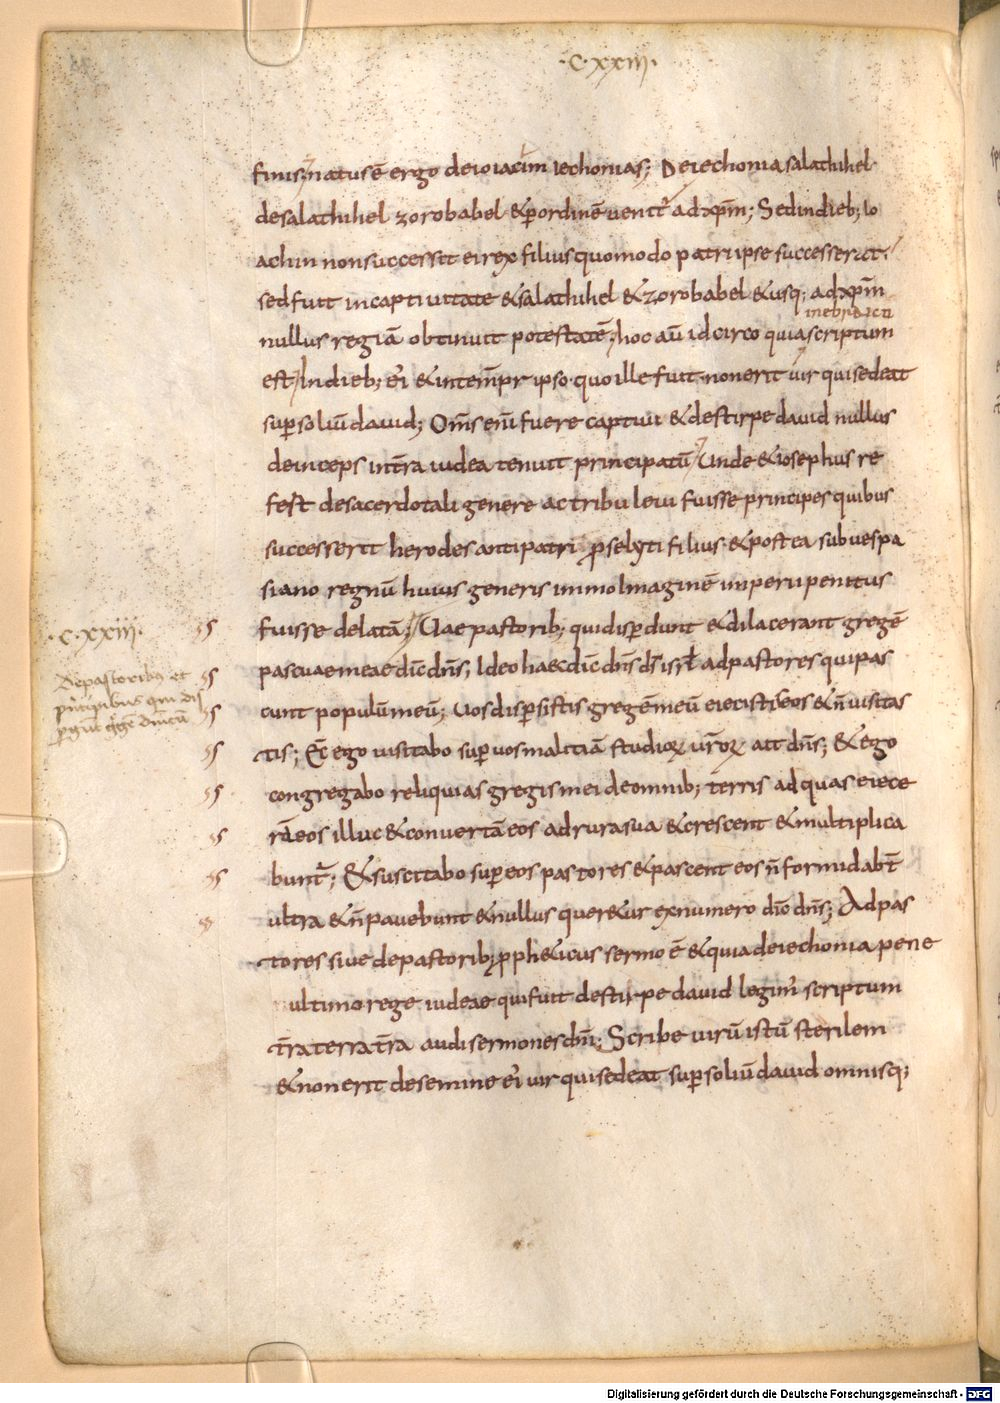 ·C·XXIII·
finis; natus ē ergo de ioiacim iechonias; De iechonia salathihel·
de salathihel zorobabel & p̄ ordinē uenit' ad xp̄m; Sed in dieb; io
achim non successit ei rex filius quomodo patri ipse successerat·
sed fuit in captiuitate & salathihel & zorobabel & usq; ad xp̄m
in ebraico
nullus regiā obtinuit potestatē; hoc aū idcirco quia scriptum
est; In dieb; ei' & in temp̄r ipso quo ille fuit· non erit uir qui sedeat
sup̄ soliū dauid; Om̄s eni̅ fuere captiui & de stirpe dauid nullus
deinceps in tr̄a iudea tenuit principatū; Unde & iosephus re
fert de sacerdotali genere ac tribu leui fuisse principes quibus
successerit herodes antipatri p̄selyti filius & postea sub uespa
siano regnū huius generis immo imaginē imperii penitus
fuisse delatā; Uae pastorib; qui disp̄dunt & dilacerant gregē
pascuae meae dīc dn̄s; Ideo haec dīc dn̄s d̄s isrl̄ ad pastores qui pas
cunt populū meū; Uos disp̄sistis gregē meū eiecistis eos & n̄ uisitas
tis; Ec̄ ego uisitabo sup̄ uos malitiā studioꝝ ur̄oꝝ ait dn̄s; & ego
congregabo reliquias gregis mei de omnib; terris ad quas eiece
rō eos illuc & conuertā eos ad rura sua & crescent & multiplica
bunt'; & suscitabo sup̄ eos pastores & pascent eos n̄ formidabt̄
ultra & n̄ pauebunt & nullus quer&ur ex numero dīc dn̄s; Ad pas
tores siue de pastorib; p̄ph&icus sermo ē & quia de iechonia pene
ultimo rege iudeae qui fuit de stirpe dauid legim' scriptum
tr̄a terra tr̄a audi sermones dn̄i; Scribe uirū istū sterilem
& non erit de semine ei' uir qui sedeat sup̄ soliū dauid omnisq;
·C·XXIII·
De pastorib; et
principibus qui dis
p̄gūt gregē dn̄icū
Digitalisierung gefördert durch die Deutsche Forschungsgemeinschaft - DFG